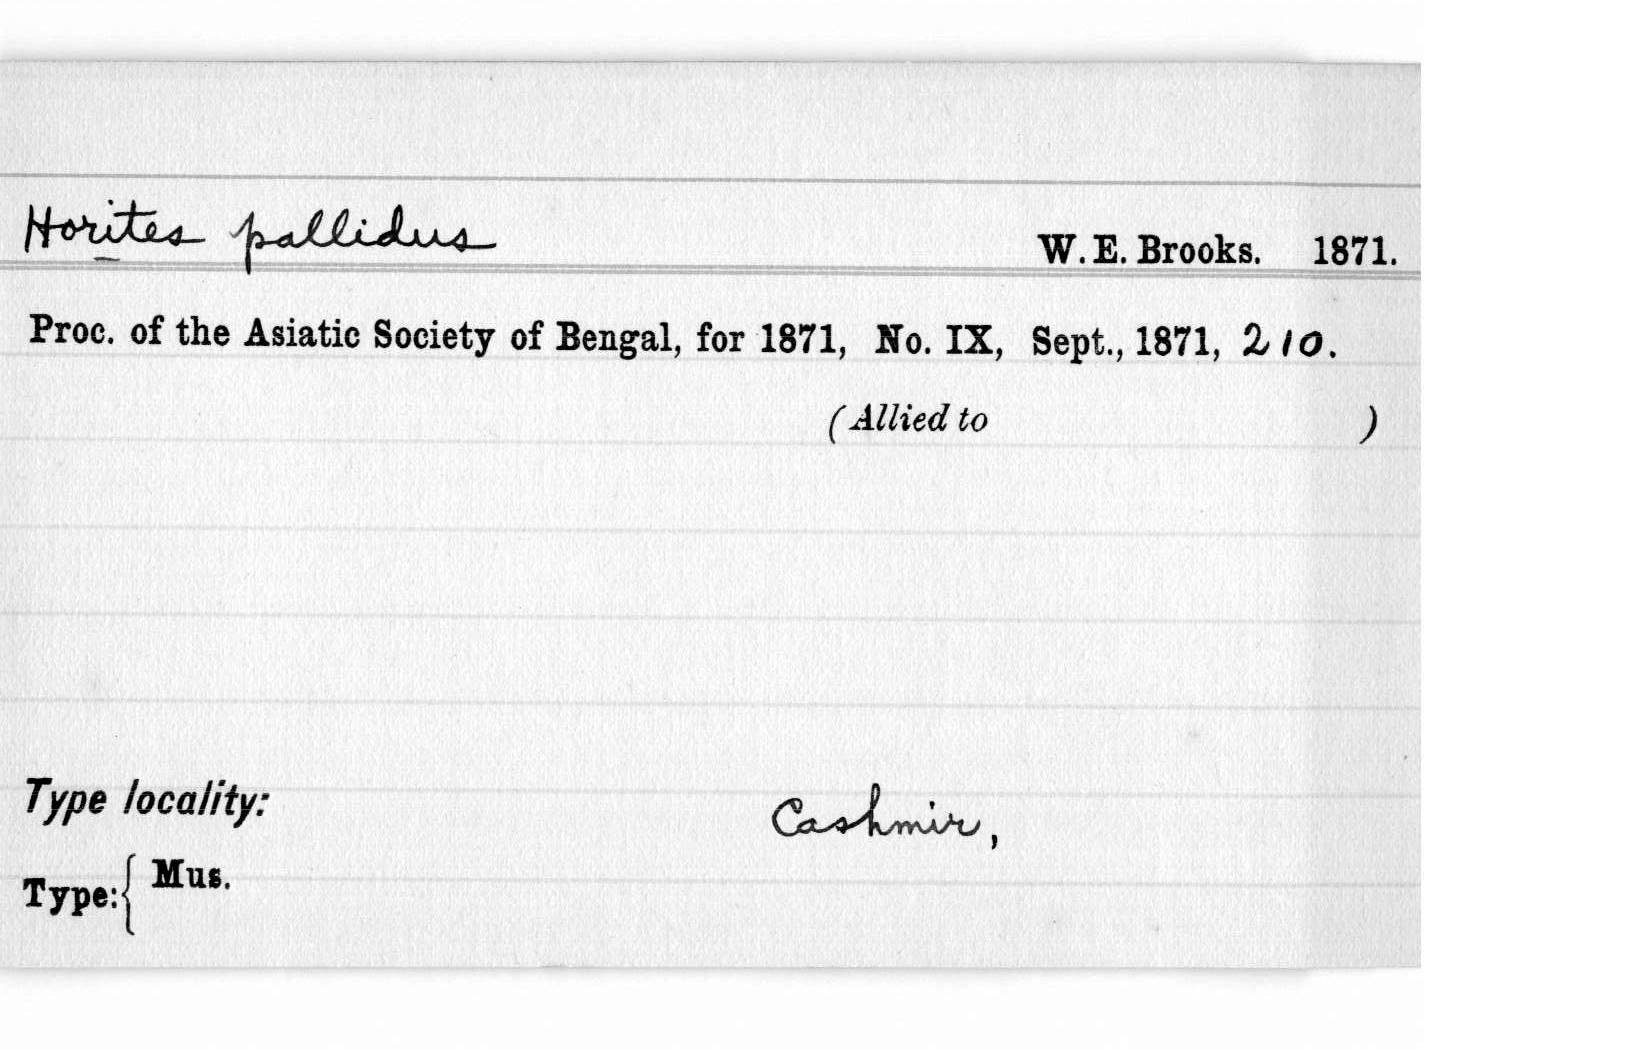 Horites pallidus W. E. Brooks. 1871.
Proc. of the Asiatic Society of Bengal, for 1871, No. IX, Sept., 1871, 210.
(Allied to )
Type locality: Cashmir,
Type: { Mus.